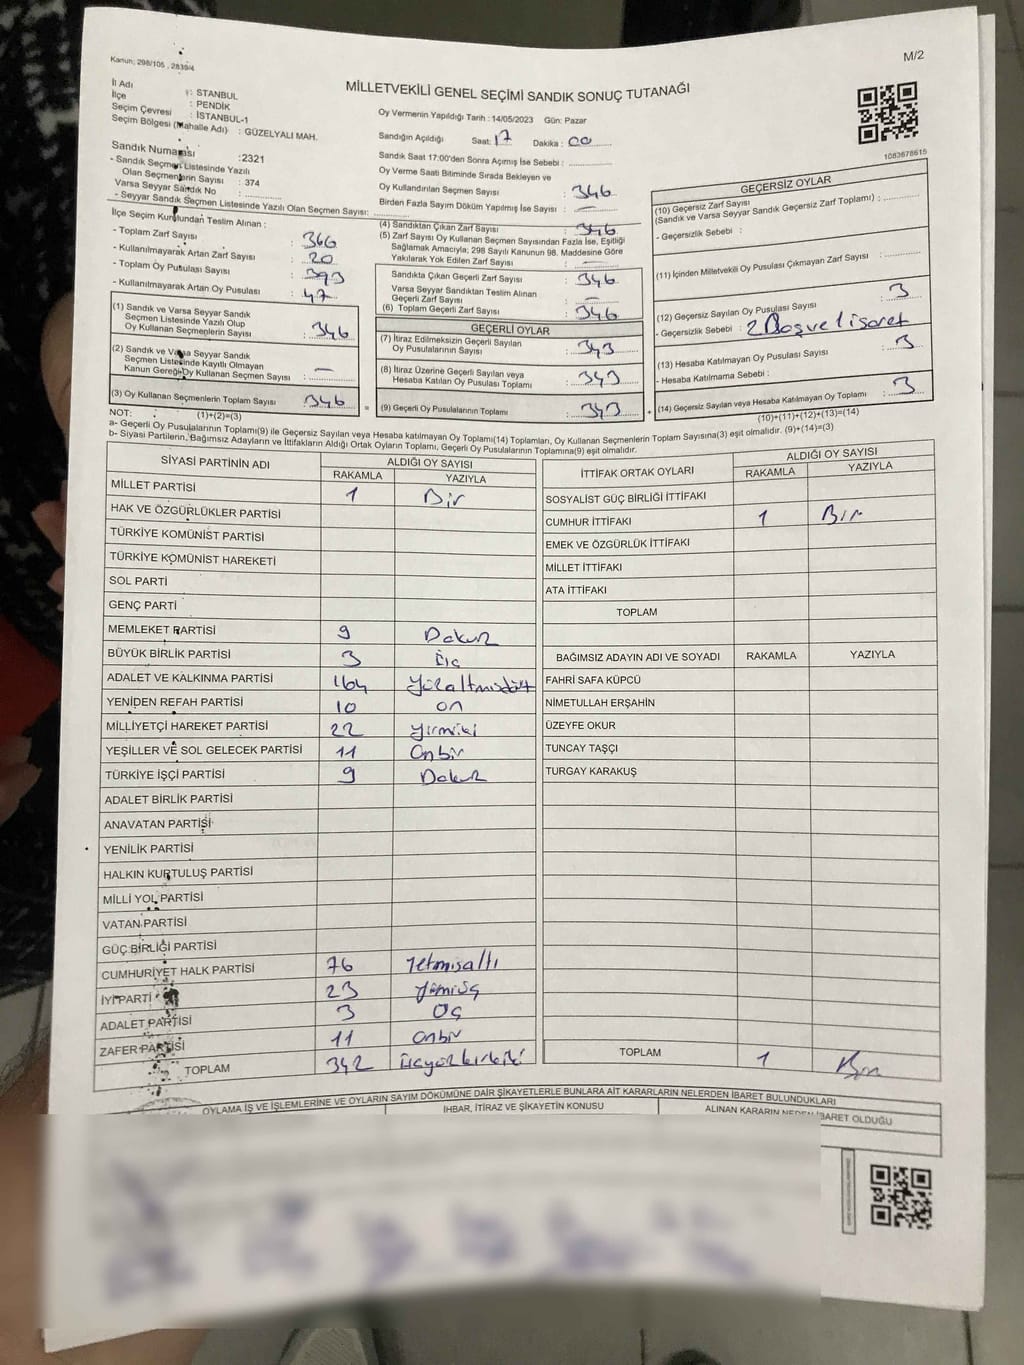 Kanun; 298/105 , 2839/4
M/2
MİLLETVEKİLİ GENEL SEÇİMİ SANDIK SONUÇ TUTANAĞI
İl Adı : İSTANBUL
İlçe : PENDİK
Seçim Çevresi : İSTANBUL-1
Seçim Bölgesi (Mahalle Adı) : GÜZELYALI MAH.
Sandık Numarası :2321
- Sandık Seçmen Listesinde Yazılı
Olan Seçmenlerin Sayısı : 374
Varsa Seyyar Sandık No : ..............
- Seyyar Sandık Seçmen Listesinde Yazılı Olan Seçmen Sayısı: ..............
Oy Vermenin Yapıldığı Tarih : 14/05/2023 Gün: Pazar
Sandığın Açıldığı Saat: 17 Dakika : 00
Sandık Saat 17:00'den Sonra Açımış İse Sebebi : ..............
Oy Verme Saati Bitiminde Sırada Bekleyen ve
Oy Kullandırılan Seçmen Sayısı : 346
Birden Fazla Sayım Döküm Yapılmış İse Sayısı : —
1083678615
İlçe Seçim Kurulundan Teslim Alınan :
- Toplam Zarf Sayısı : 366
- Kullanılmayarak Artan Zarf Sayısı : 20
- Toplam Oy Pusulası Sayısı : 393
- Kullanılmayarak Artan Oy Pusulası : 47
(1) Sandık ve Varsa Seyyar Sandık
Seçmen Listesinde Yazılı Olup
Oy Kullanan Seçmenlerin Sayısı : 346
(2) Sandık ve Varsa Seyyar Sandık
Seçmen Listesinde Kayıtlı Olmayan
Kanun Gereği Oy Kullanan Seçmen Sayısı : —
(3) Oy Kullanan Seçmenlerin Toplam Sayısı : 346
(1)+(2)=(3)
(4) Sandıktan Çıkan Zarf Sayısı : 346
(5) Zarf Sayısı Oy Kullanan Seçmen Sayısından Fazla İse, Eşitliği
Sağlamak Amacıyla; 298 Sayılı Kanunun 98. Maddesine Göre
Yakılarak Yok Edilen Zarf Sayısı : —
Sandıkta Çıkan Geçerli Zarf Sayısı : 346
Varsa Seyyar Sandıktan Teslim Alınan
Geçerli Zarf Sayısı : —
(6) Toplam Geçerli Zarf Sayısı : 346
GEÇERLİ OYLAR
(7) İtiraz Edilmeksizin Geçerli Sayılan
Oy Pusulalarının Sayısı : 343
(8) İtiraz Üzerine Geçerli Sayılan veya
Hesaba Katılan Oy Pusulası Toplamı : 343
= (9) Geçerli Oy Pusulalarının Toplamı : 343 +
GEÇERSİZ OYLAR
(10) Geçersiz Zarf Sayısı
(Sandık ve Varsa Seyyar Sandık Geçersiz Zarf Toplamı) : ..............
- Geçersizlik Sebebi :
(11) İçinden Milletvekili Oy Pusulası Çıkmayan Zarf Sayısı : ..............
(12) Geçersiz Sayılan Oy Pusulası Sayısı : 3
- Geçersizlik Sebebi : 2 Boş ve 1 işaret
(13) Hesaba Katılmayan Oy Pusulası Sayısı : 3
- Hesaba Katılmama Sebebi :
(14) Geçersiz Sayılan veya Hesaba Katılmayan Oy Toplamı : 3
(10)+(11)+(12)+(13)=(14)
NOT:
a- Geçerli Oy Pusulalarının Toplamı(9) ile Geçersiz Sayılan veya Hesaba katılmayan Oy Toplamı(14) Toplamları, Oy Kullanan Seçmenlerin Toplam Sayısına(3) eşit olmalıdır. (9)+(14)=(3)
b- Siyasi Partilerin, Bağımsız Adayların ve İttifakların Aldığı Ortak Oyların Toplamı, Geçerli Oy Pusulalarının Toplamına(9) eşit olmalıdır.
SİYASİ PARTİNİN ADI ALDIĞI OY SAYISI
RAKAMLA YAZIYLA
MİLLET PARTİSİ 1 Bir
HAK VE ÖZGÜRLÜKLER PARTİSİ
TÜRKİYE KOMÜNİST PARTİSİ
TÜRKİYE KOMÜNİST HAREKETİ
SOL PARTİ
GENÇ PARTİ
MEMLEKET PARTİSİ 9 Dokuz
BÜYÜK BİRLİK PARTİSİ 3 Üç
ADALET VE KALKINMA PARTİSİ 164 Yüzaltmışdört
YENİDEN REFAH PARTİSİ 10 on
MİLLİYETÇİ HAREKET PARTİSİ 22 yirmiiki
YEŞİLLER VE SOL GELECEK PARTİSİ 11 Onbir
TÜRKİYE İŞÇİ PARTİSİ 9 Dokuz
ADALET BİRLİK PARTİSİ
ANAVATAN PARTİSİ
YENİLİK PARTİSİ
HALKIN KURTULUŞ PARTİSİ
MİLLİ YOL PARTİSİ
VATAN PARTİSİ
GÜÇ BİRLİĞİ PARTİSİ
CUMHURİYET HALK PARTİSİ 76 Yetmişaltı
İYİ PARTİ 23
ADALET PARTİSİ 3 Üç
ZAFER PARTİSİ 11 onbir
TOPLAM 342 üçyüzkırkiki
İTTİFAK ORTAK OYLARI ALDIĞI OY SAYISI
RAKAMLA YAZIYLA
SOSYALİST GÜÇ BİRLİĞİ İTTİFAKI
CUMHUR İTTİFAKI 1 Bir
EMEK VE ÖZGÜRLÜK İTTİFAKI
MİLLET İTTİFAKI
ATA İTTİFAKI
TOPLAM
BAĞIMSIZ ADAYIN ADI VE SOYADI RAKAMLA YAZIYLA
FAHRİ SAFA KÜPCÜ
NİMETULLAH ERŞAHİN
ÜZEYFE OKUR
TUNCAY TAŞÇI
TURGAY KARAKUŞ
TOPLAM 1 Bir
OYLAMA İŞ VE İŞLEMLERİNE VE OYLARIN SAYIM DÖKÜMÜNE DAİR ŞİKAYETLERLE BUNLARA AİT KARARLARIN NELERDEN İBARET BULUNDUKLARI
İHBAR, İTİRAZ VE ŞİKAYETİN KONUSU
ALINAN KARARIN NEDEN İBARET OLDUĞU